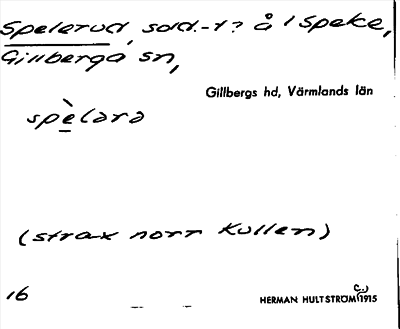 Spelerud, sold.-t? å 1 Speke,
Gillberga sn,
Gillbergs hd, Värmlands län
spèlərə
(strax norr Kullen)
16
HERMAN HULTSTRÖM (C.) 1915